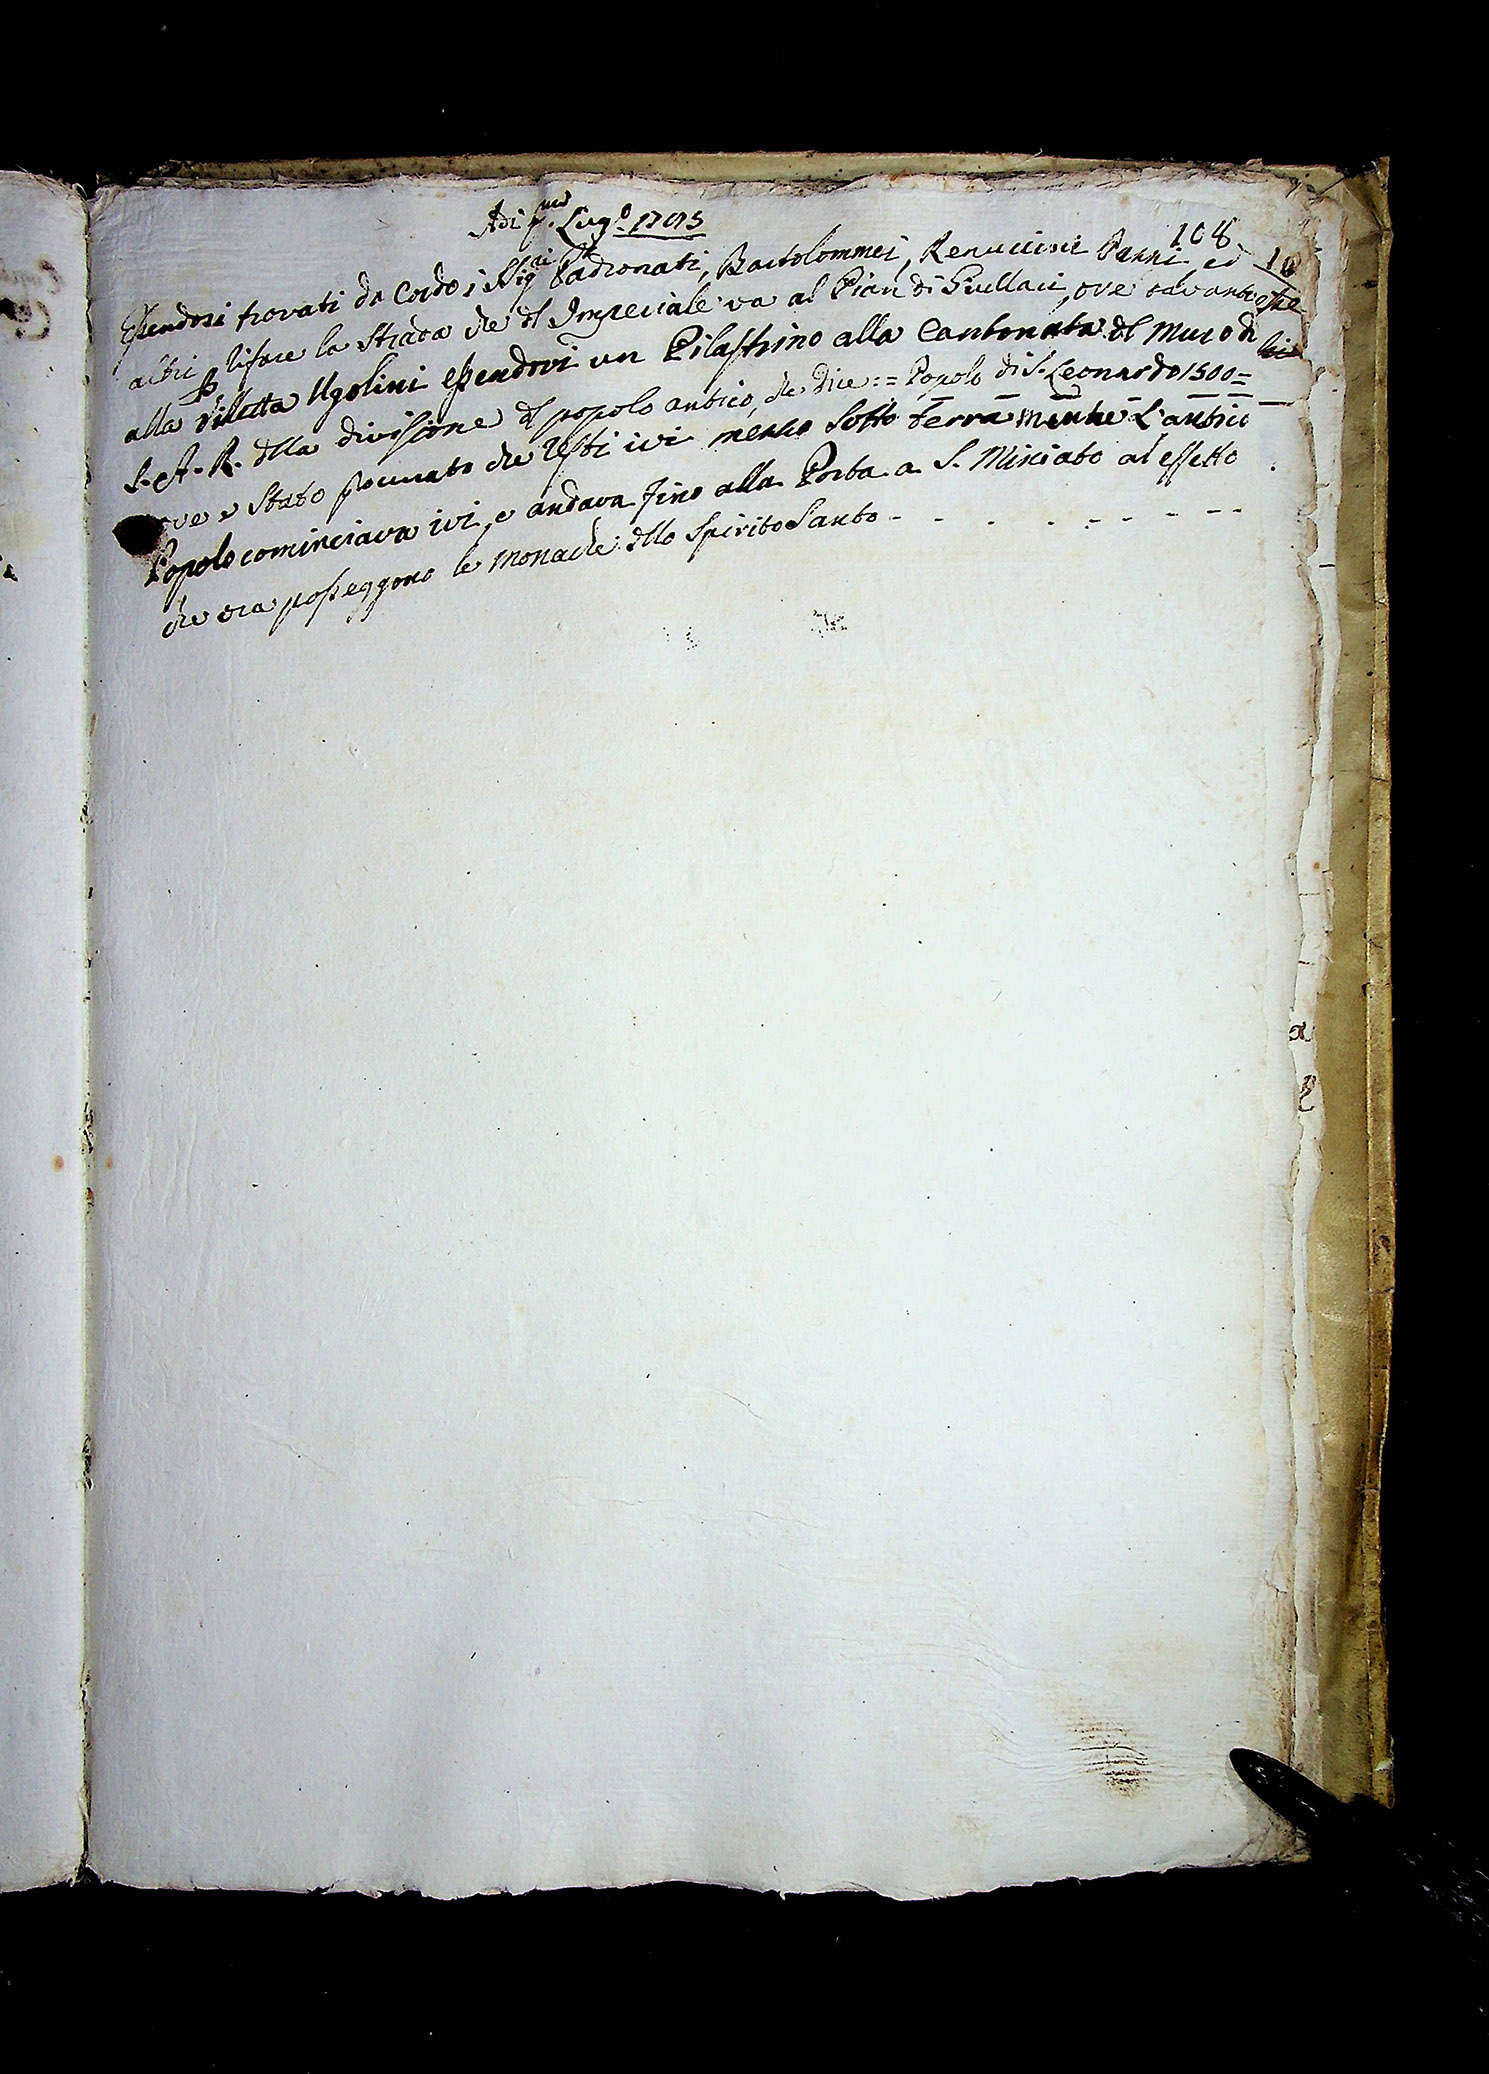 Adi p.mo Lug.o 1705
108
Essendosi trovati da Cordo i Sig.ri Padronati, Bartolommei, Renuccini Panni ed
altri p rifare la strada che dl Imperiale va al Pian di Giullari, ove davanti
alla Villetta Ugolini essendovi un Pilastrino alla Cantonata dl muro di
S. A. R. dlla divisione dl popolo antico, che dice := Popolo di S. Leonardo 1500=
ove e stato procurato che resti ivi messo sotto terra mentre L'antico
Popolo cominciava ivi, e andava fino alla Porta a S. Miniato al effetto
che ora posseggono le monache dllo Spirito Santo - - - - - - - - -